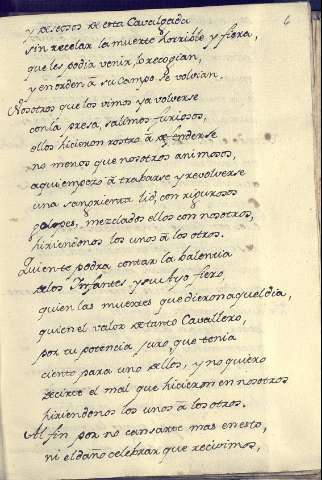 6
y deseosos de esta Cavalgada
sin recelar la muerte horrible y fiera,
que les podia venir, lo recogian,
y en orden â su Campo se volvian.
Nosotros que los vimos ya volverse
con la presa, salimos furiosos,
ellos hicieron rostro â defenderse
no menos que nosotros animosos,
aqui empezo â trabarse y revolverse
una sangrienta lid, con rigurosos
golpes, mezclados ellos con nosotros,
hiriendonos los unos â los otros.
Quien te podra contar la balentia
de los Infantes y su Ayo fiero,
quien las muertes que dieron aquel dia,
quien el valor de tanto Cavallero,
por tu potencia juro, que tenia
ciento para uno dellos, y no quiero
decirte el mal que hicieron en nosotros
hiriendonos los unos â los otros.
Al fin por no cansarte mas en esto,
ni el daño celebrar que recivimos,